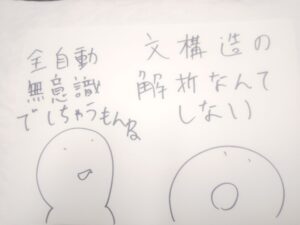 全自動
無意識
でしちゃうもんね
文構造の
解析なんて
しない